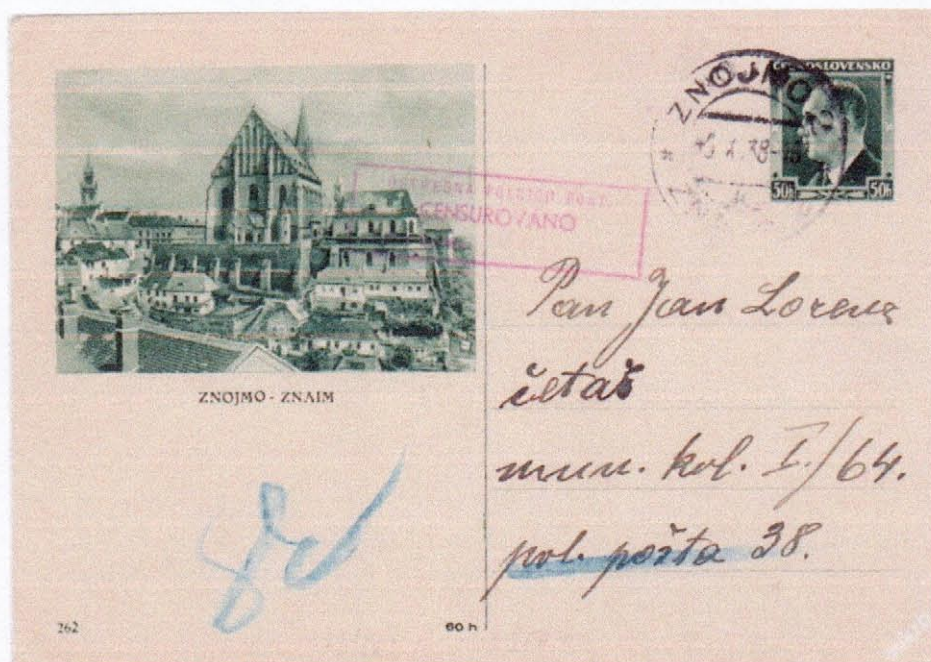 ČESKOSLOVENSKO
50h 50h
ZNOJMO
38
CENSUROVANO
ZNOJMO - ZNAIM
Pan Jan Lorenz
četař
mun. kol. I./64.
pol. pošta 38.
262
60 h